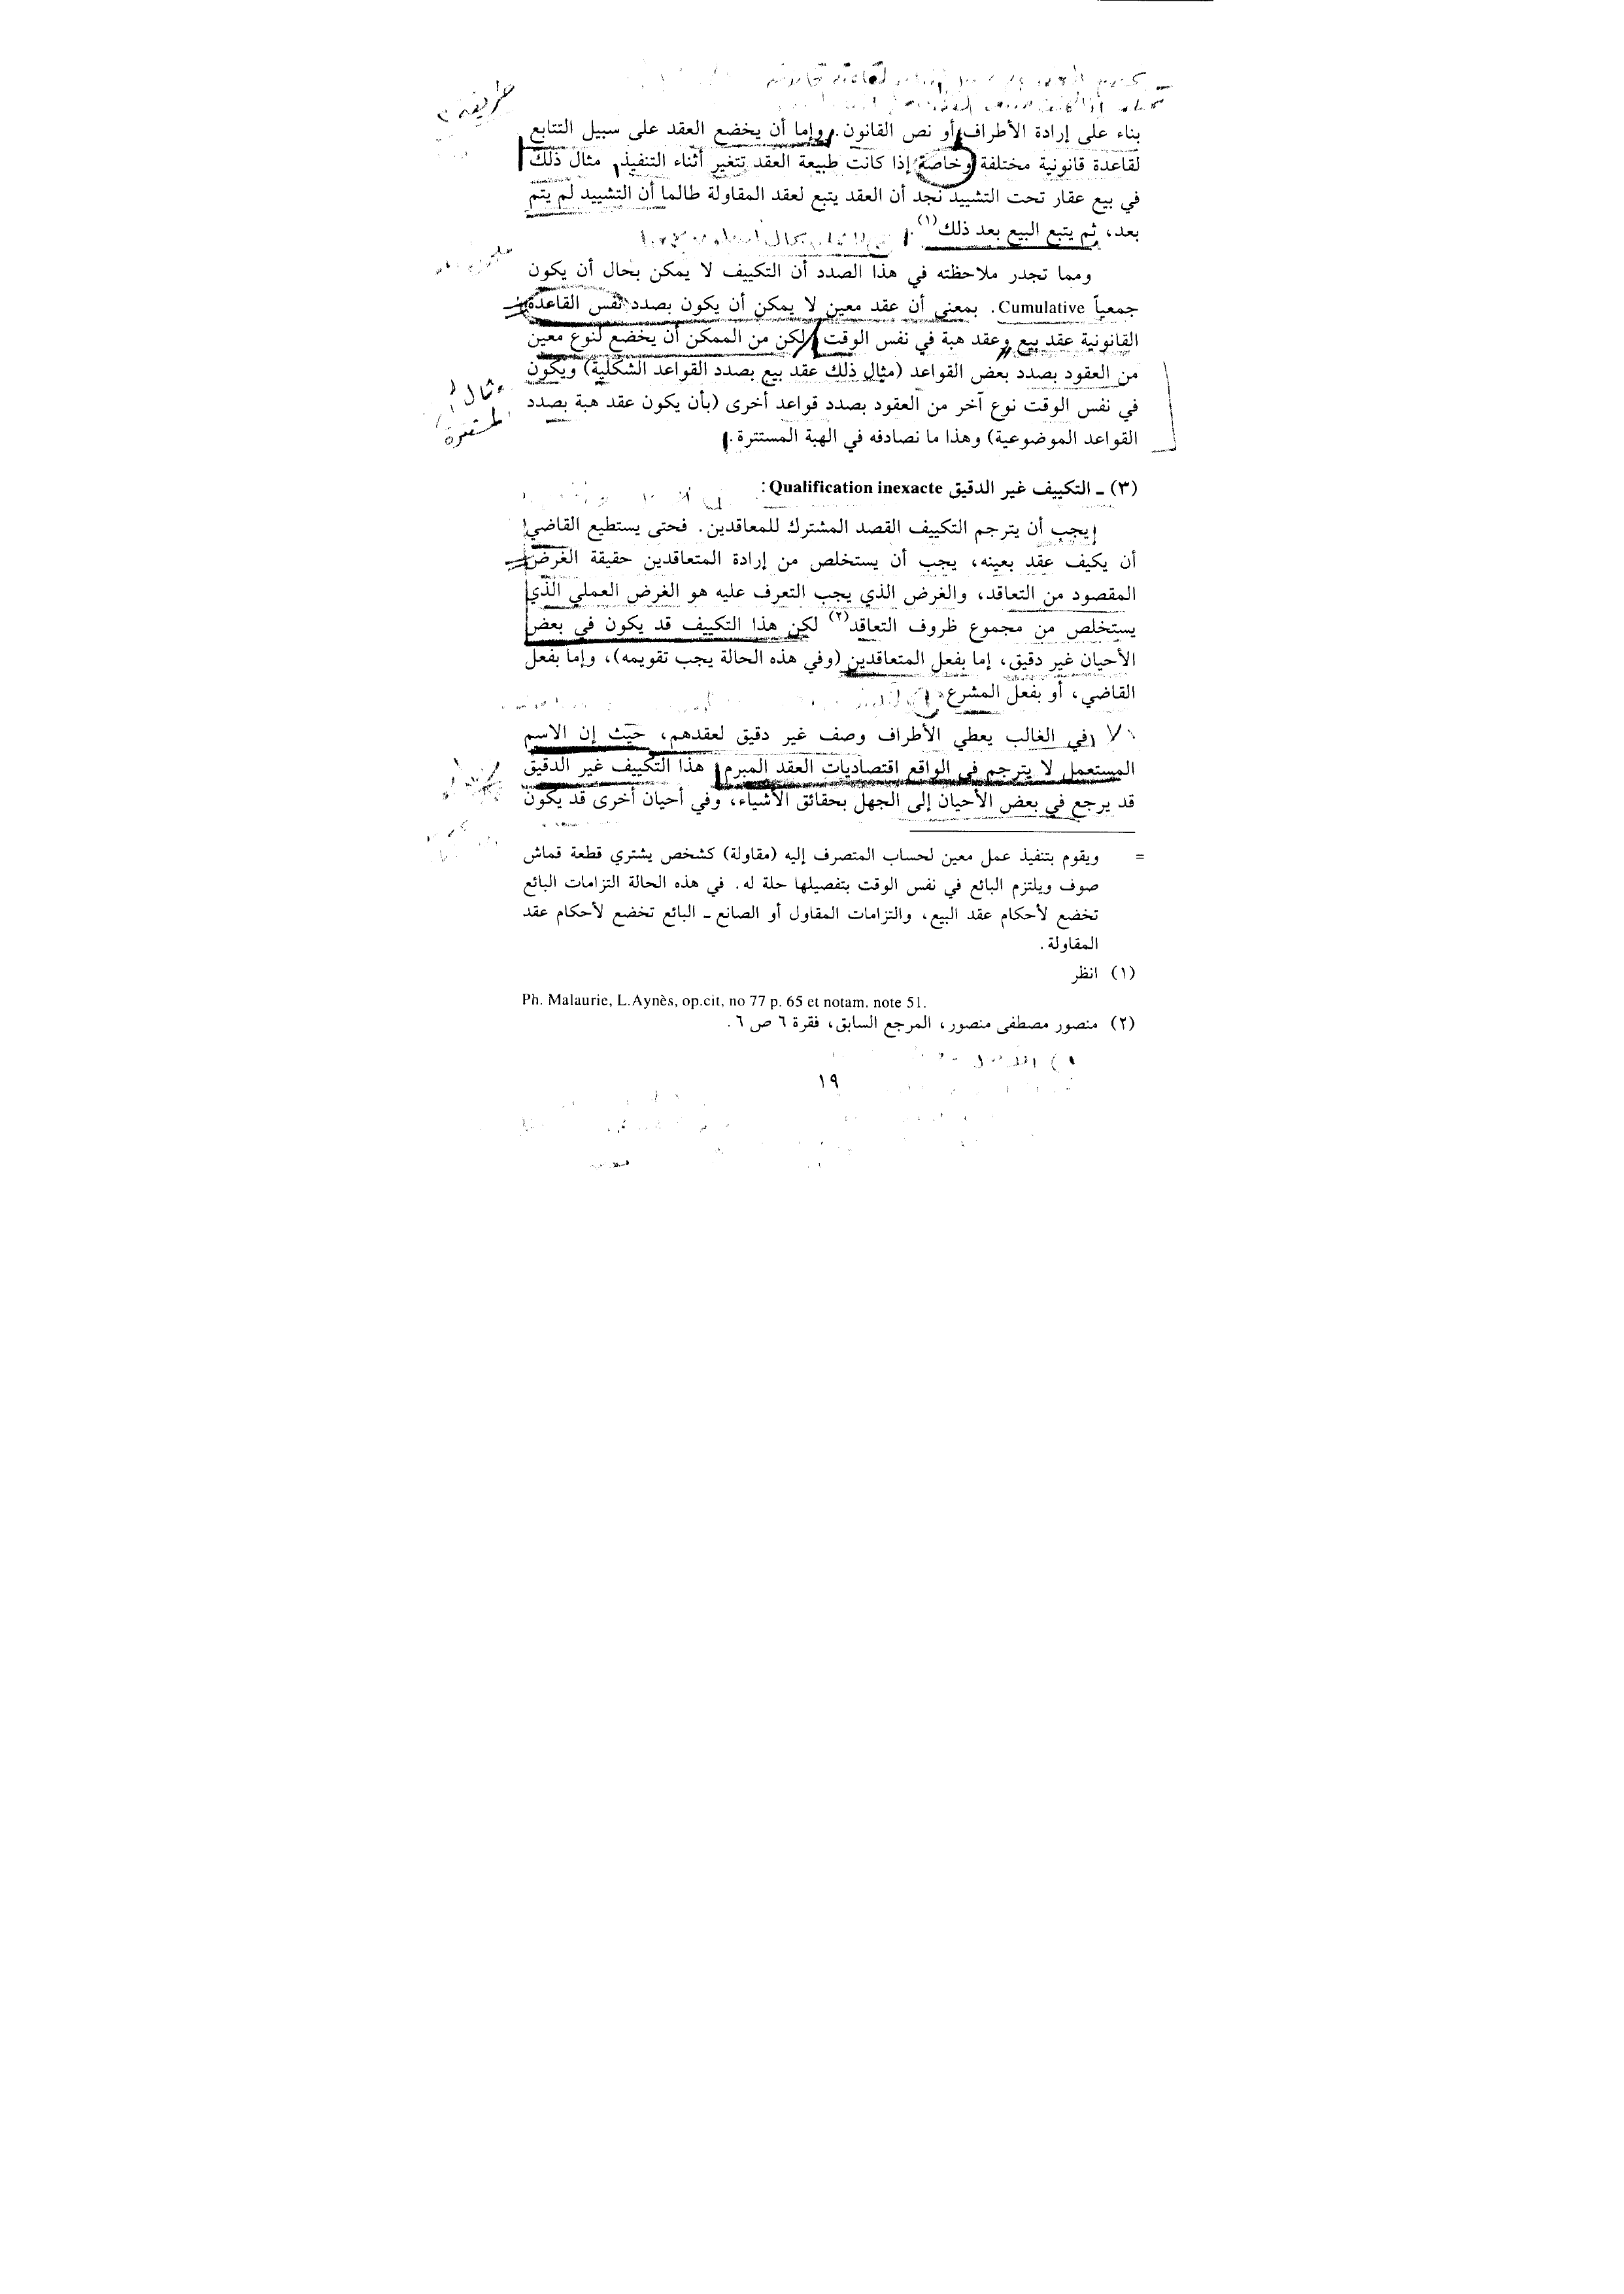 بناء على إرادة الأطراف أو نص القانون. وإما أن يخضع العقد على سبيل التتابع
لقاعدة قانونية مختلفة وخاصة إذا كانت طبيعة العقد تتغير أثناء التنفيذ، مثال ذلك
في بيع عقار تحت التشييد نجد أن العقد يتبع لعقد المقاولة طالما أن التشييد لم يتم
بعد، ثم يتبع البيع بعد ذلك(١).
ومما تجدر ملاحظته في هذا الصدد أن التكييف لا يمكن بحال أن يكون
جمعياً Cumulative. بمعنى أن عقد معين لا يمكن أن يكون بصدد نفس القاعدة
القانونية عقد بيع وعقد هبة في نفس الوقت لكن من الممكن أن يخضع لنوع معين
من العقود بصدد بعض القواعد (مثال ذلك عقد بيع بصدد القواعد الشكلية) ويكون
مثال
في نفس الوقت نوع آخر من العقود بصدد قواعد أخرى (بأن يكون عقد هبة بصدد
القواعد الموضوعية) وهذا ما نصادفه في الهبة المستترة.
(٣) ـ التكييف غير الدقيق Qualification inexacte:
يجب أن يترجم التكييف القصد المشترك للمعاقدين. فحتى يستطيع القاضي
أن يكيف عقد بعينه، يجب أن يستخلص من إرادة المتعاقدين حقيقة الغرض
المقصود من التعاقد، والغرض الذي يجب التعرف عليه هو الغرض العملي الذي
يستخلص من مجموع ظروف التعاقد(٢) لكن هذا التكييف قد يكون في بعض
الأحيان غير دقيق، إما بفعل المتعاقدين (وفي هذه الحالة يجب تقويمه)، وإما بفعل
القاضي، أو بفعل المشرع
في الغالب يعطي الأطراف وصف غير دقيق لعقدهم، حيث إن الاسم
المستعمل لا يترجم في الواقع اقتصاديات العقد المبرم هذا التكييف غير الدقيق
قد يرجع في بعض الأحيان إلى الجهل بحقائق الأشياء، وفي أحيان أخرى قد يكون
= ويقوم بتنفيذ عمل معين لحساب المتصرف إليه (مقاولة) كشخص يشتري قطعة قماش
صوف ويلتزم البائع في نفس الوقت بتفصيلها حلة له. في هذه الحالة التزامات البائع
تخضع لأحكام عقد البيع، والتزامات المقاول أو الصانع ـ البائع تخضع لأحكام عقد
المقاولة.
(١) انظر
Ph. Malaurie, L.Aynès, op.cit, no 77 p. 65 et notam. note 51.
(٢) منصور مصطفى منصور، المرجع السابق، فقرة ٦ ص ٦.
١٩